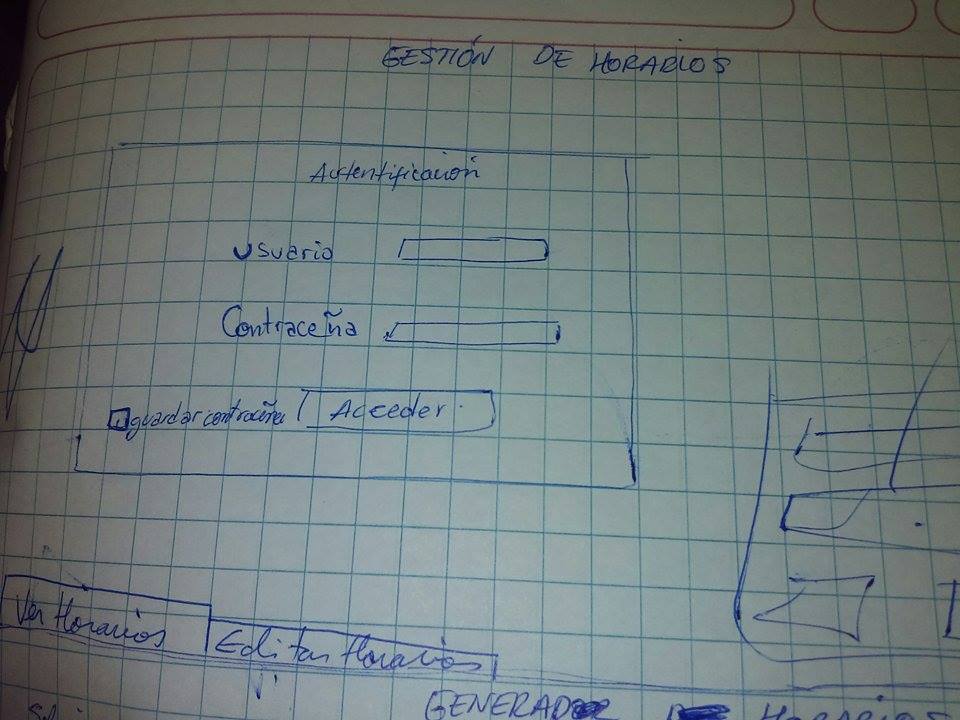 GESTIÓN DE HORARIOS
Autentificación
Usuario
Contraceña
guardar contraceña Acceder
Ver Horarios
Editar Horarios
GENERADOR DE HORARIOS